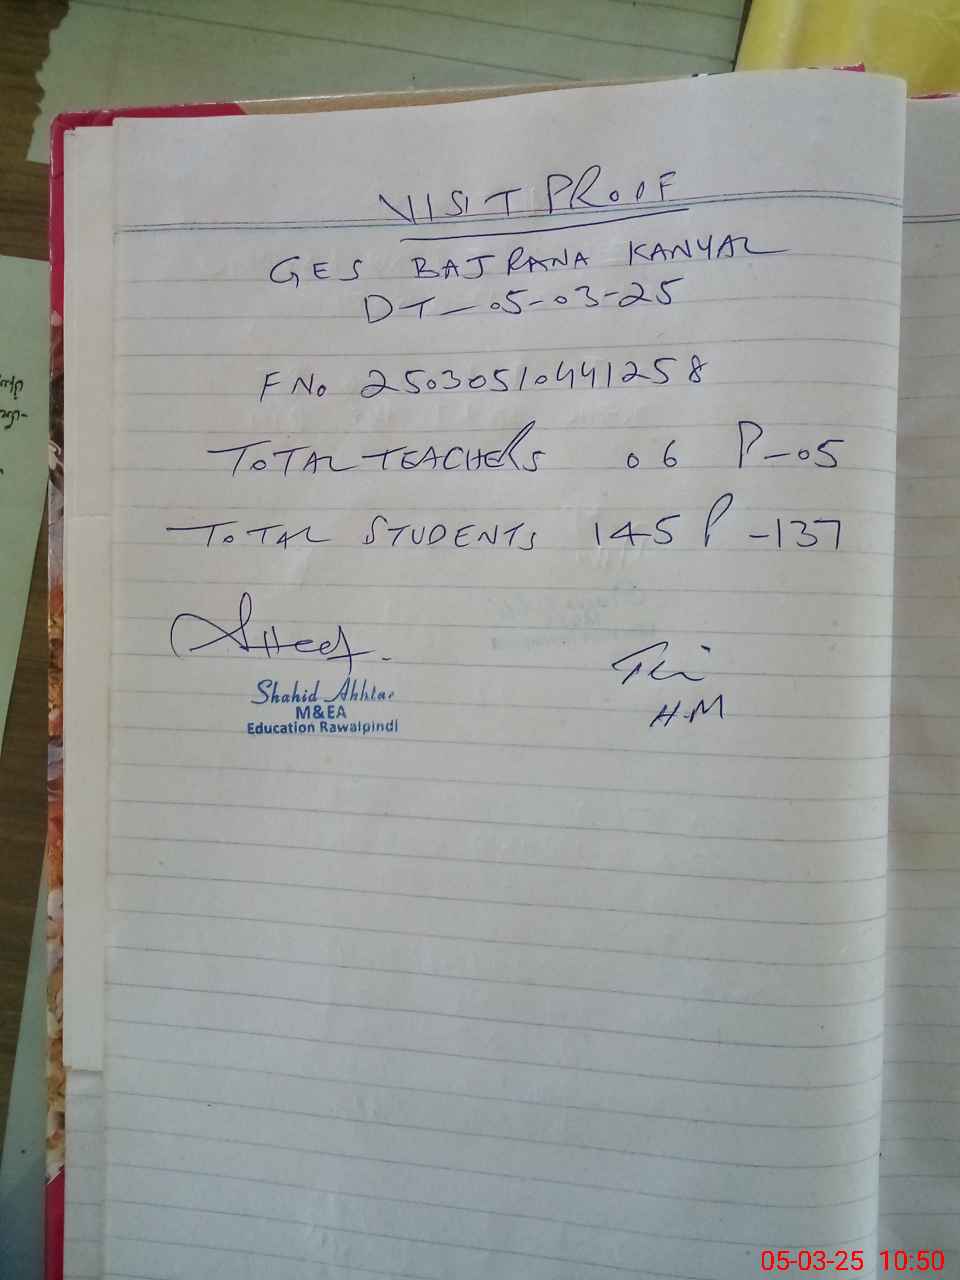 VISIT PROOF
GES BAJRANA KANYAL
DT-05-03-25
F No 25030510441258
TOTAL TEACHERS 06 P-05
TOTAL STUDENTS 145 P-137
Shahid Akhtar
M&EA
Education Rawalpindi
H.M
05-03-25 10:50